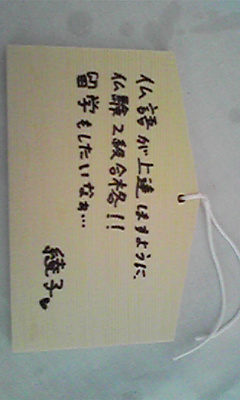 仏語が上達しますように
仏験2級合格!!
留学もしたいなぁ…
綾子♥